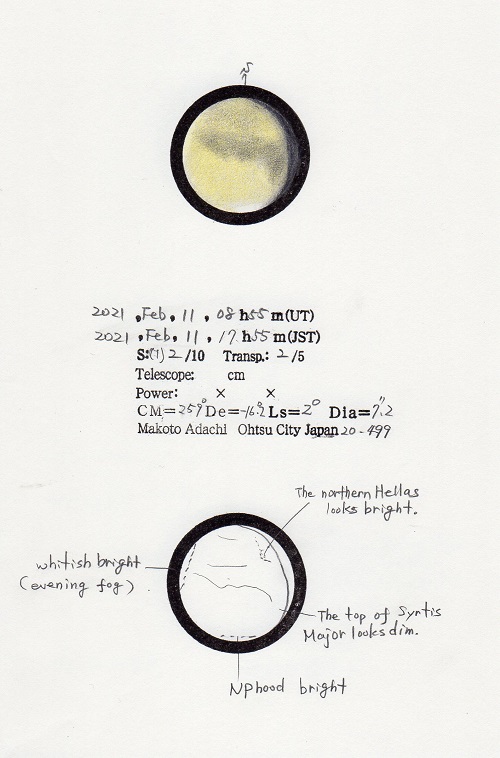 S
2021 , Feb, 11 , 08 h 55 m (UT)
2021 , Feb, 11 , 17 h 55 m (JST)
S:(1) 2 /10 Transp.: 2 /5
Telescope: cm
Power: × ×
CM=259° De=-16.2° Ls=2° Dia=7.2"
Makoto Adachi Ohtsu City Japan 20-499
The northern Hellas
looks bright.
whitish bright
(evening fog)
The top of Syrtis
Major looks dim.
NPhood bright